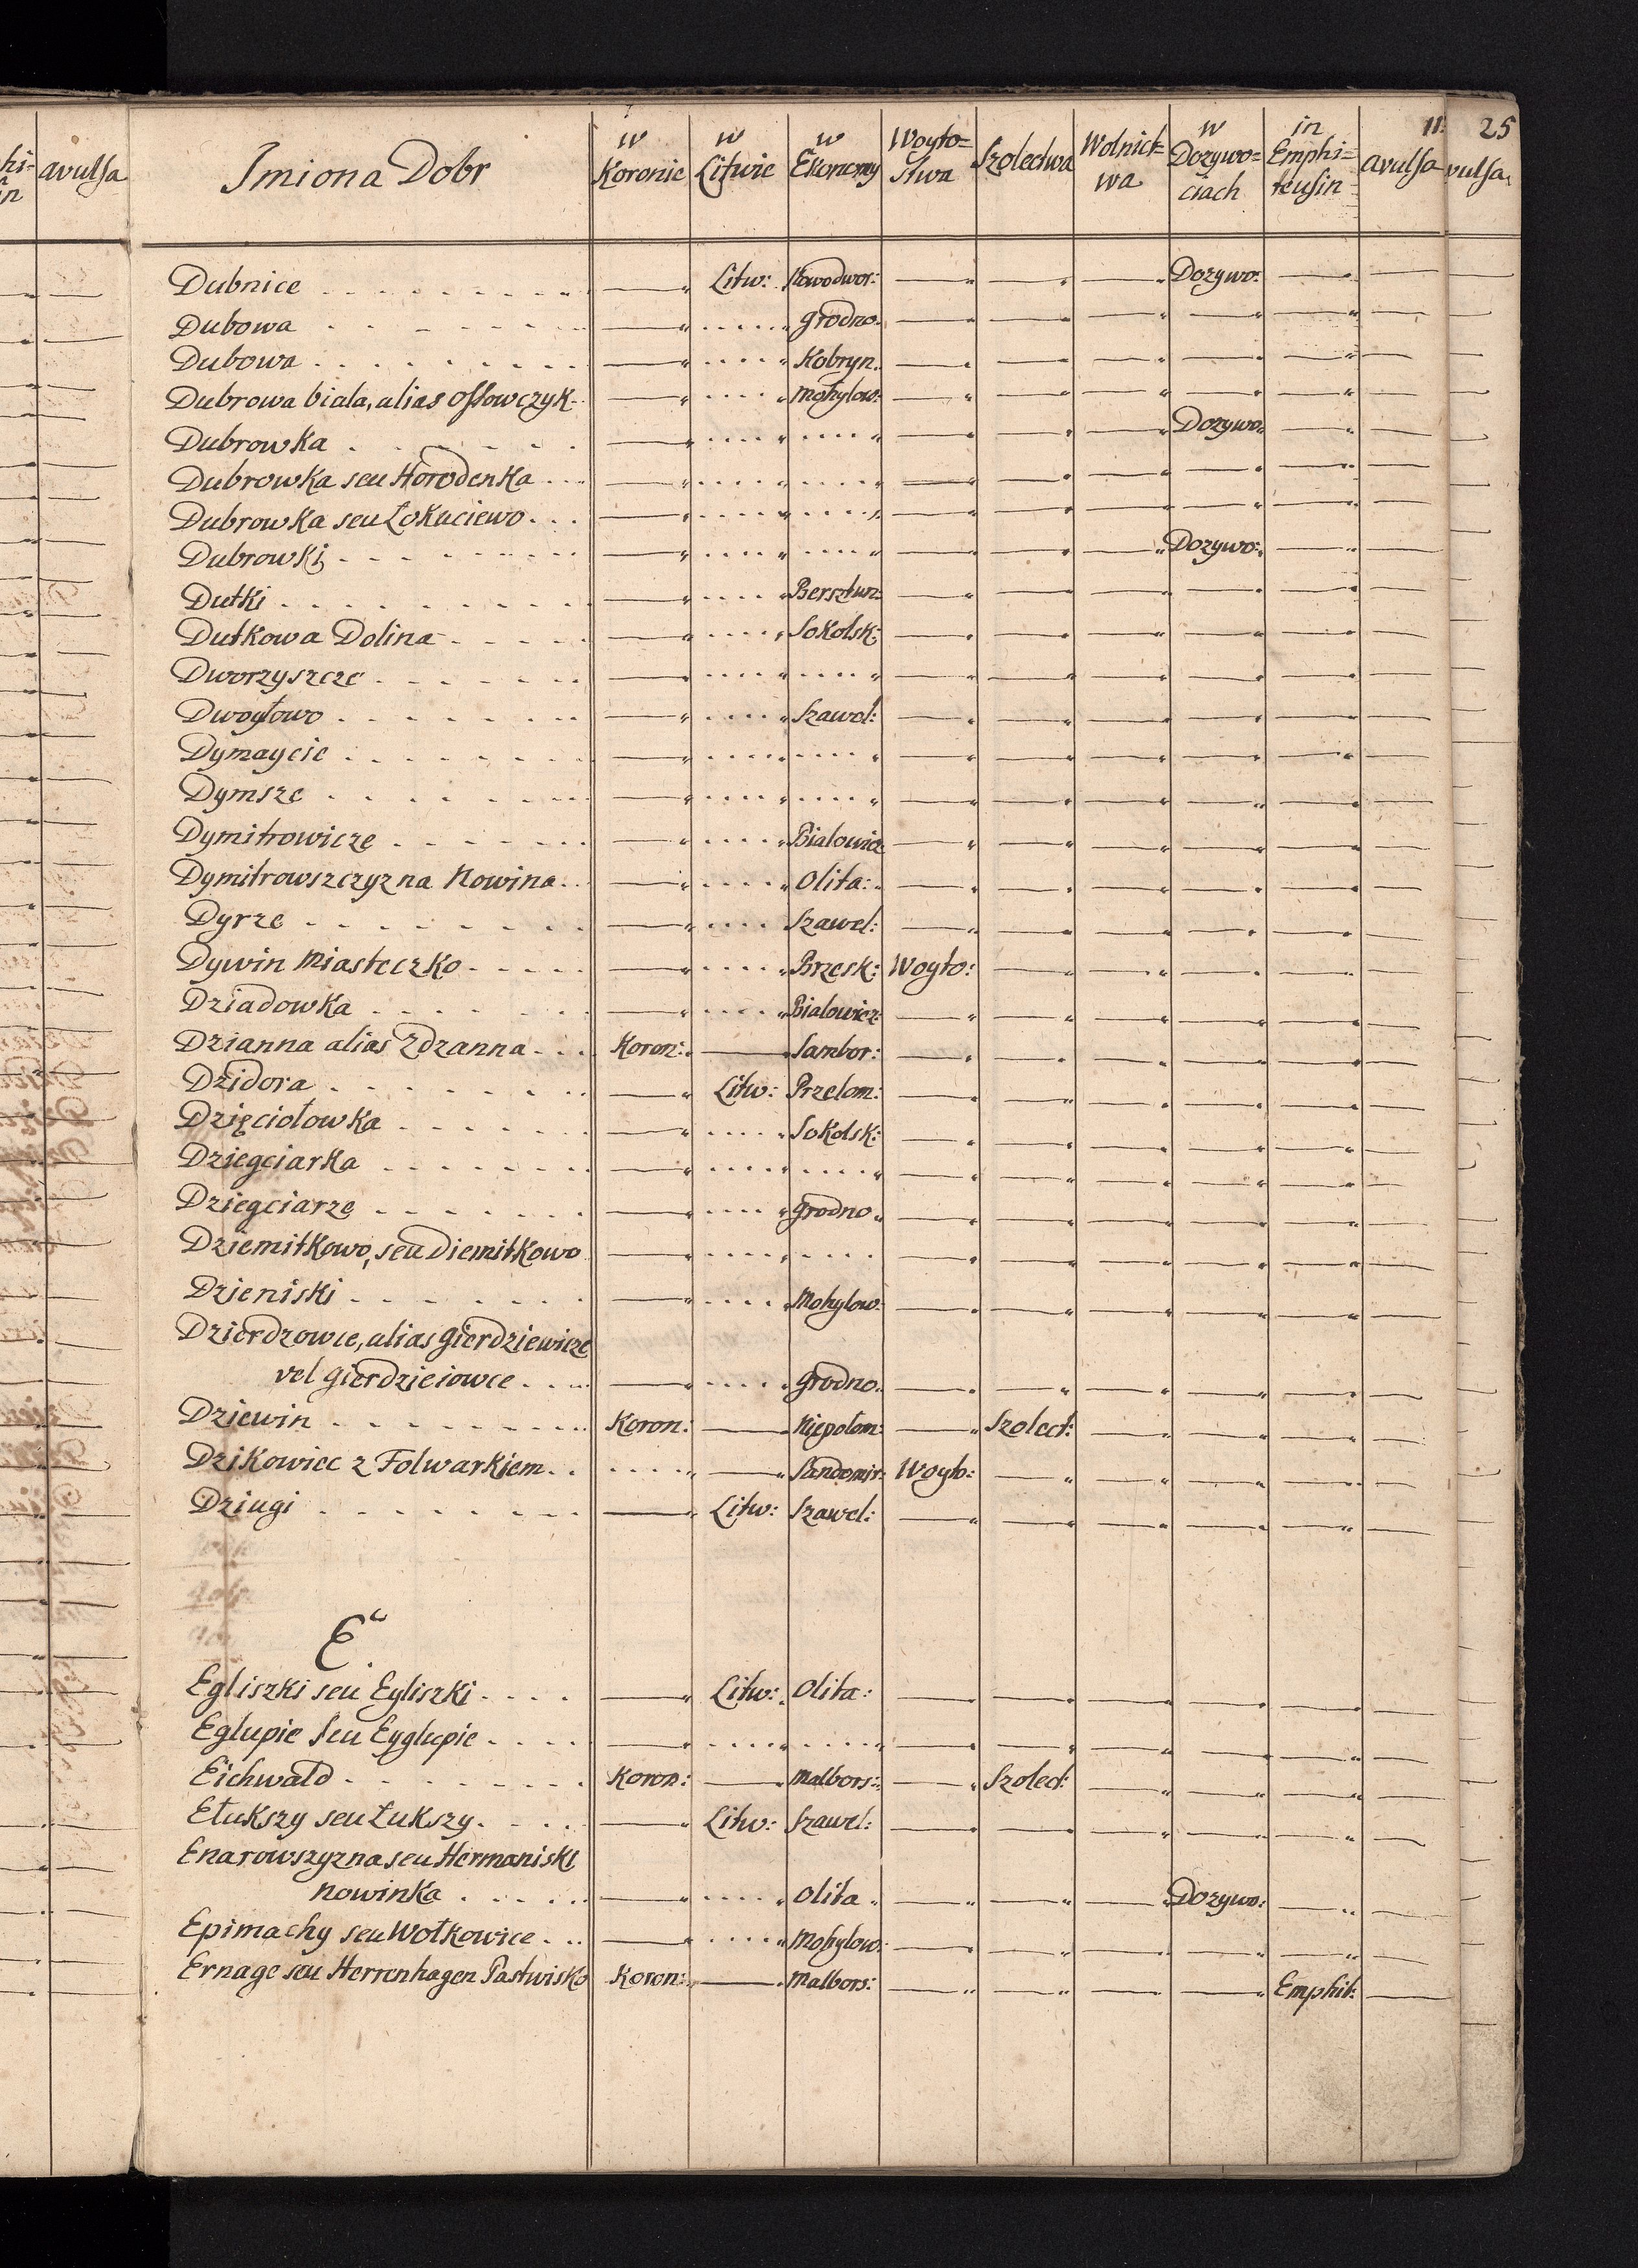 hi= avulsa
n
11. 25
Imiona Dobr w Koronie w Litwie w Ekonomy Woyto= stwa Szolectwa Wolnict= wa w Dozywo= ciach in Emphi= teusin avulsa vulsa
Dubnice Litw: Nowodwor: Dozywo:
Dubowa Grodno.
Dubowa Kobryn.
Dubrowa biala, alias Ossowczyk Mohylow:
Dubrowka Dozywo.
Dubrowka seu Horodenka
Dubrowka seu Łokuciewo
Dubrowki Dozywo:
Dutki Bersztun:
Dutkowa Dolina Sokolsk:
Dworzyszcze
Dwogłowo Szawel:
Dymaycie
Dymsze
Dymitrowicze Bialowicz
Dymitrowszczyzna Nowina Olita:
Dyrze Szawel:
Dywin Miasteczko Brzesk: Woyto:
Dziadowka Bialowicz:
Dzianna alias Zdzanna Koron: Sambor:
Dzidora Litw: Przelom:
Dzięciołowka Sokolsk:
Dziegciarka
Dziegciarze Grodno
Dziemitkowo, seu Diemitkowo
Dzieniski Mohylow:
Dzierdzowce, alias Gierdziewicze
vel Gierdzieiowce Grodno.
Dziewin Koron: Niepołom: Szolect:
Dzikowiec z Folwarkiem Sandomir: Woyto:
Dziugi Litw: Szawel:
E.
Egliszki seu Eyliszki Litw: Olita:
Eglupie seu Eyglupie
Eichwald Koron: Malbors: Szolect:
Elukszy seu Łukszy Litw: Szawel:
Enarowszyzna seu Hermaniski
nowinka Olita Dozywo:
Epimachy seu Wołkowice Mohylow:
Ernage seu Herrenhagen Pastwisko Koron: Malbors: Emphit: